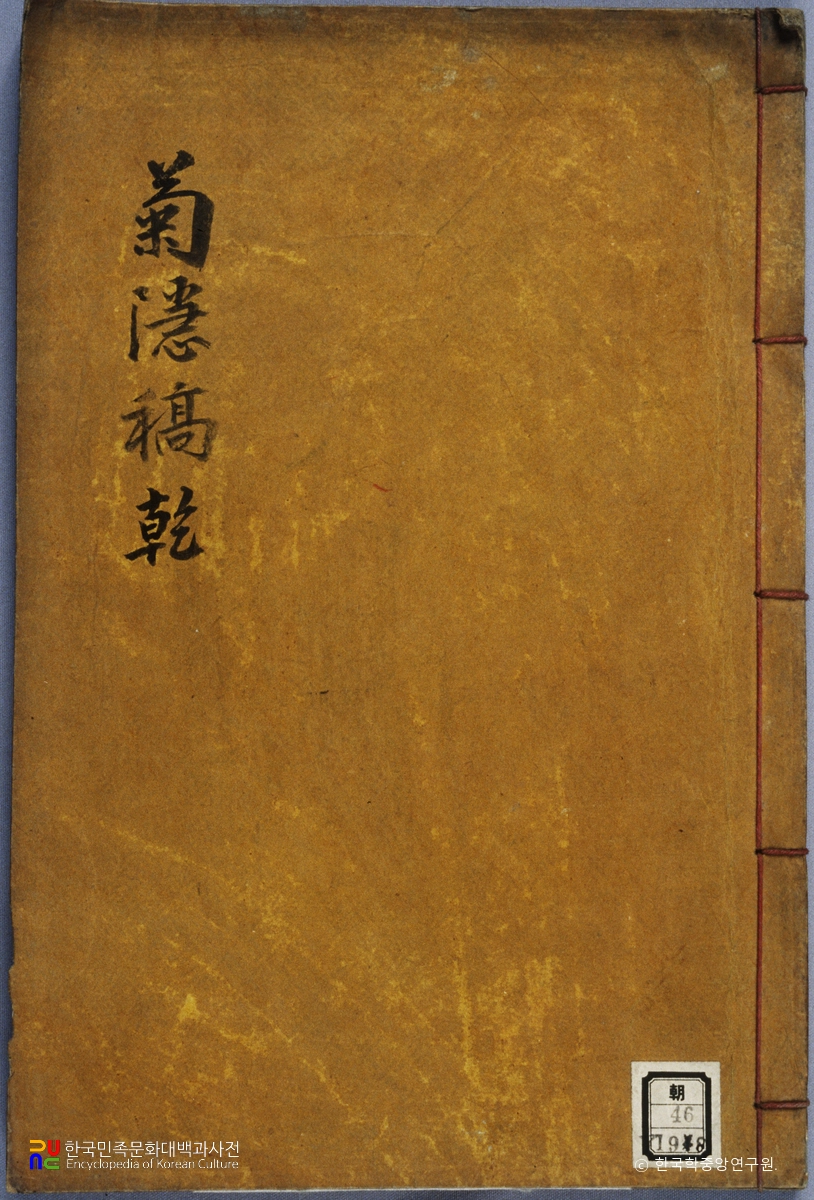 菊隱稿 乾
朝
46
한국민족문화대백과사전
Encyclopedia of Korean Culture
© 한국학중앙연구원.